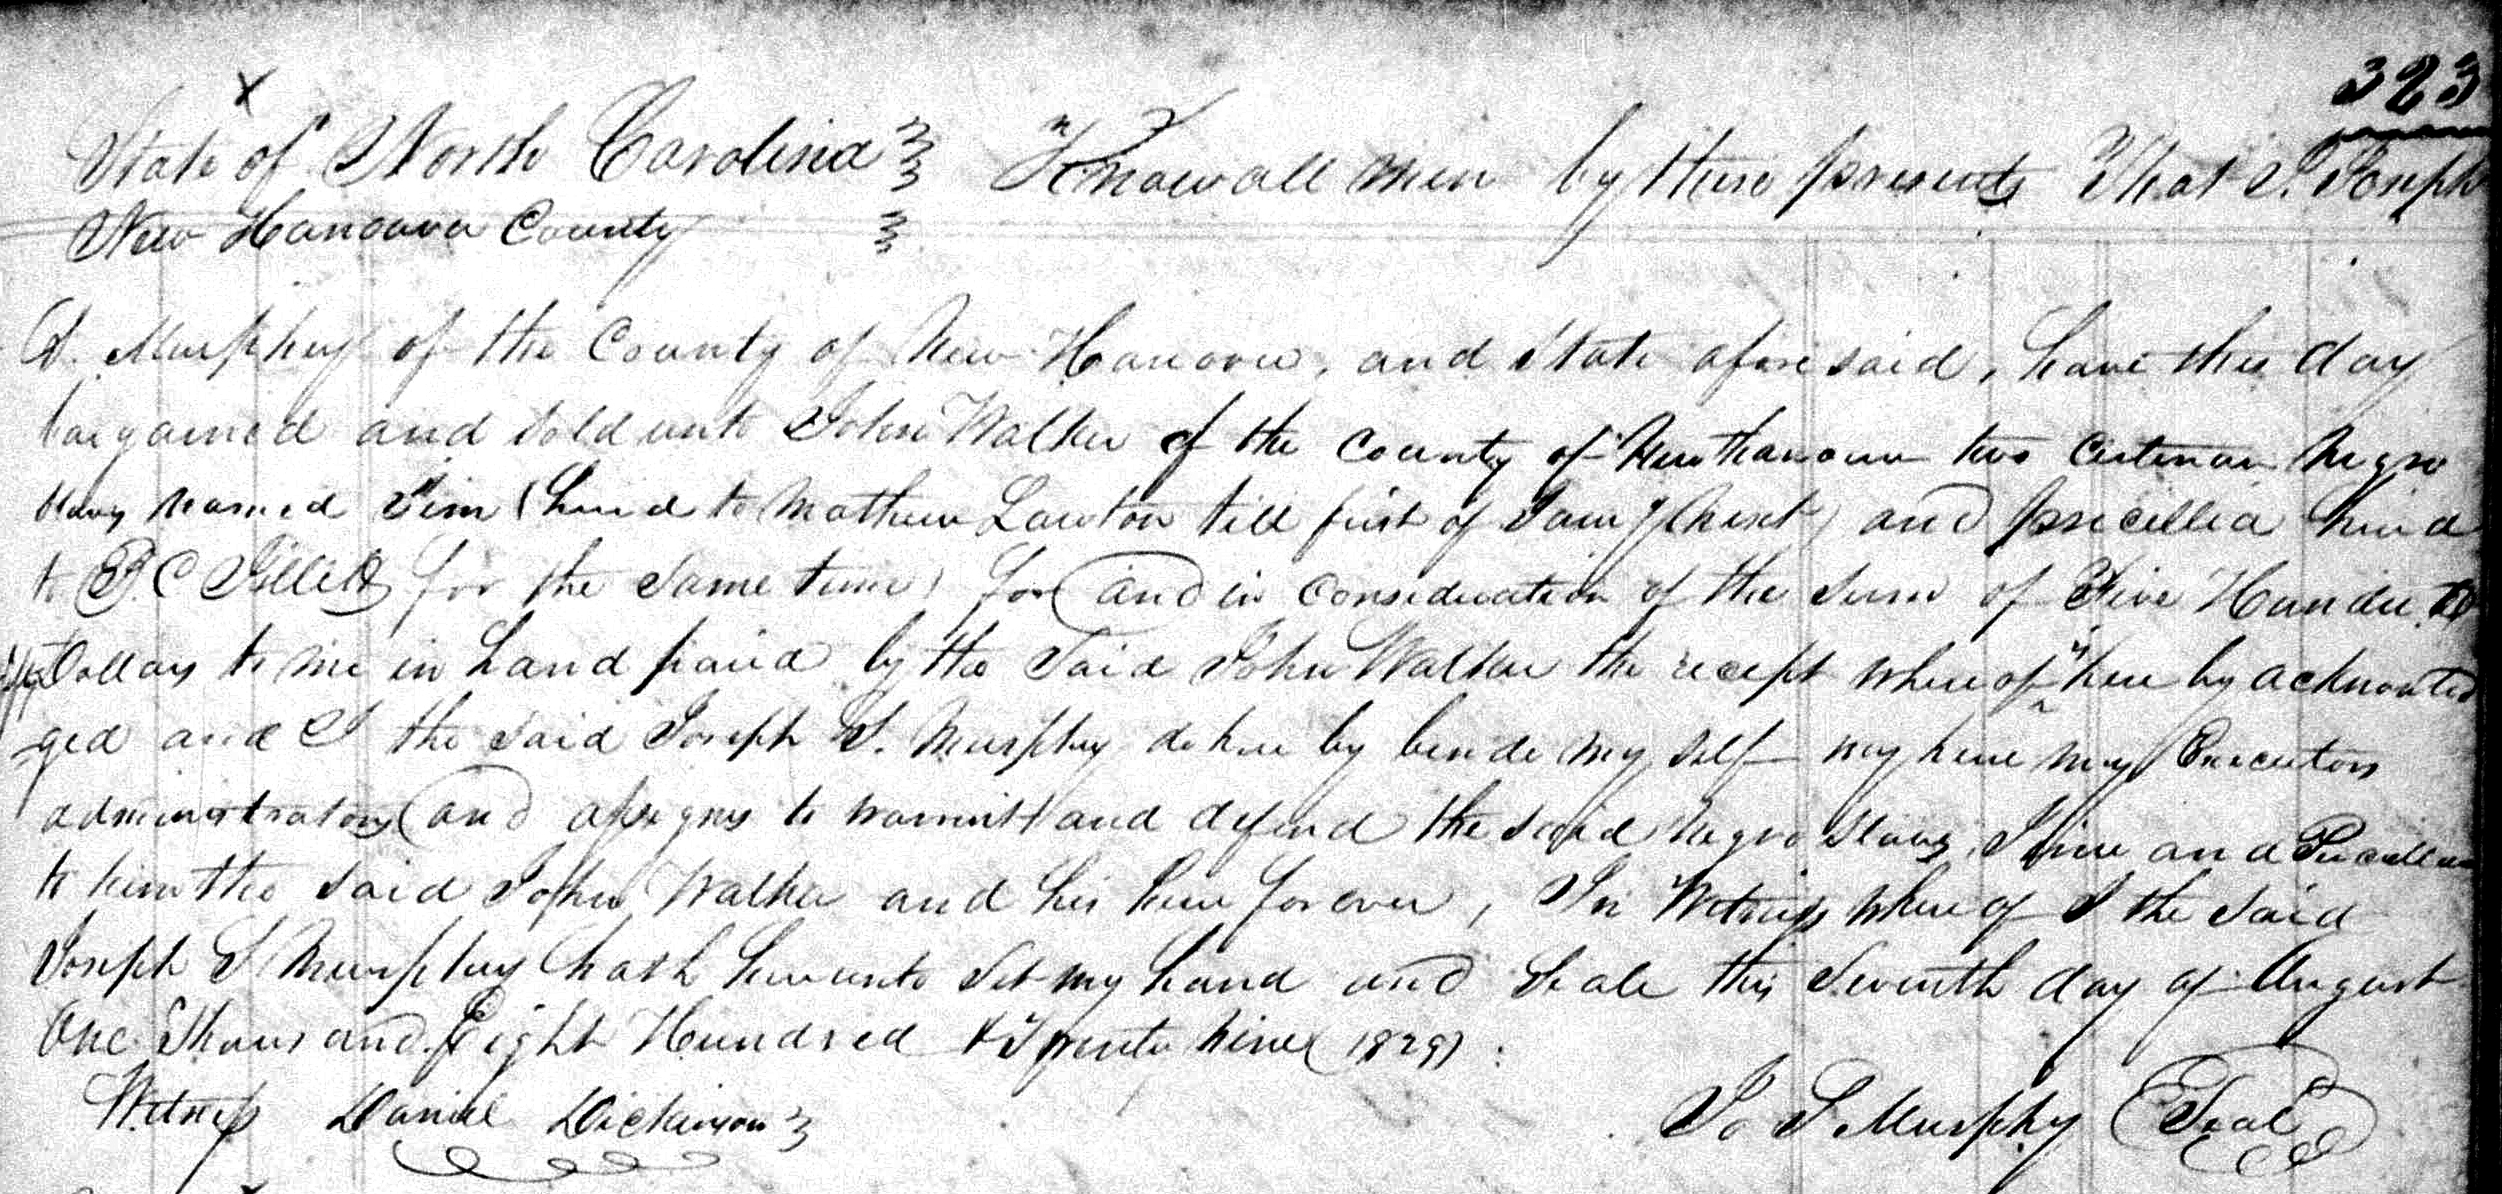 323
State of North Carolina Know all men by these presents That I Joseph
New Hanover County
S. Murphey of the County of New Hanover, and State afore said, have this day
bargained and sold unto John Walker of the County of New Hanover two Certain Negro
Slaves named Jim (hired to Mathew Lawton till first of Jany next) and priscillia hired
to for the same time) for and in Consideration of the sum of Five Hundred
Dollars to me in hand paid by the Said John Walker the recept where of here by acknowled
-ged and I the said Joseph S. Murphey do here by binde my self my heire my Executors
administrators and assigns to warrint and defend the said Negro slaves, Jim and
to him the said John Walker and his heire for ever, In Witness where of I the said
Joseph S Murphey hath hereunto set my hand and Seale this Seventh day of August
One Thousand Eight Hundred & Twenty Nine (1829)
Witness Daniel Dickinson Jo S Murphy Seal